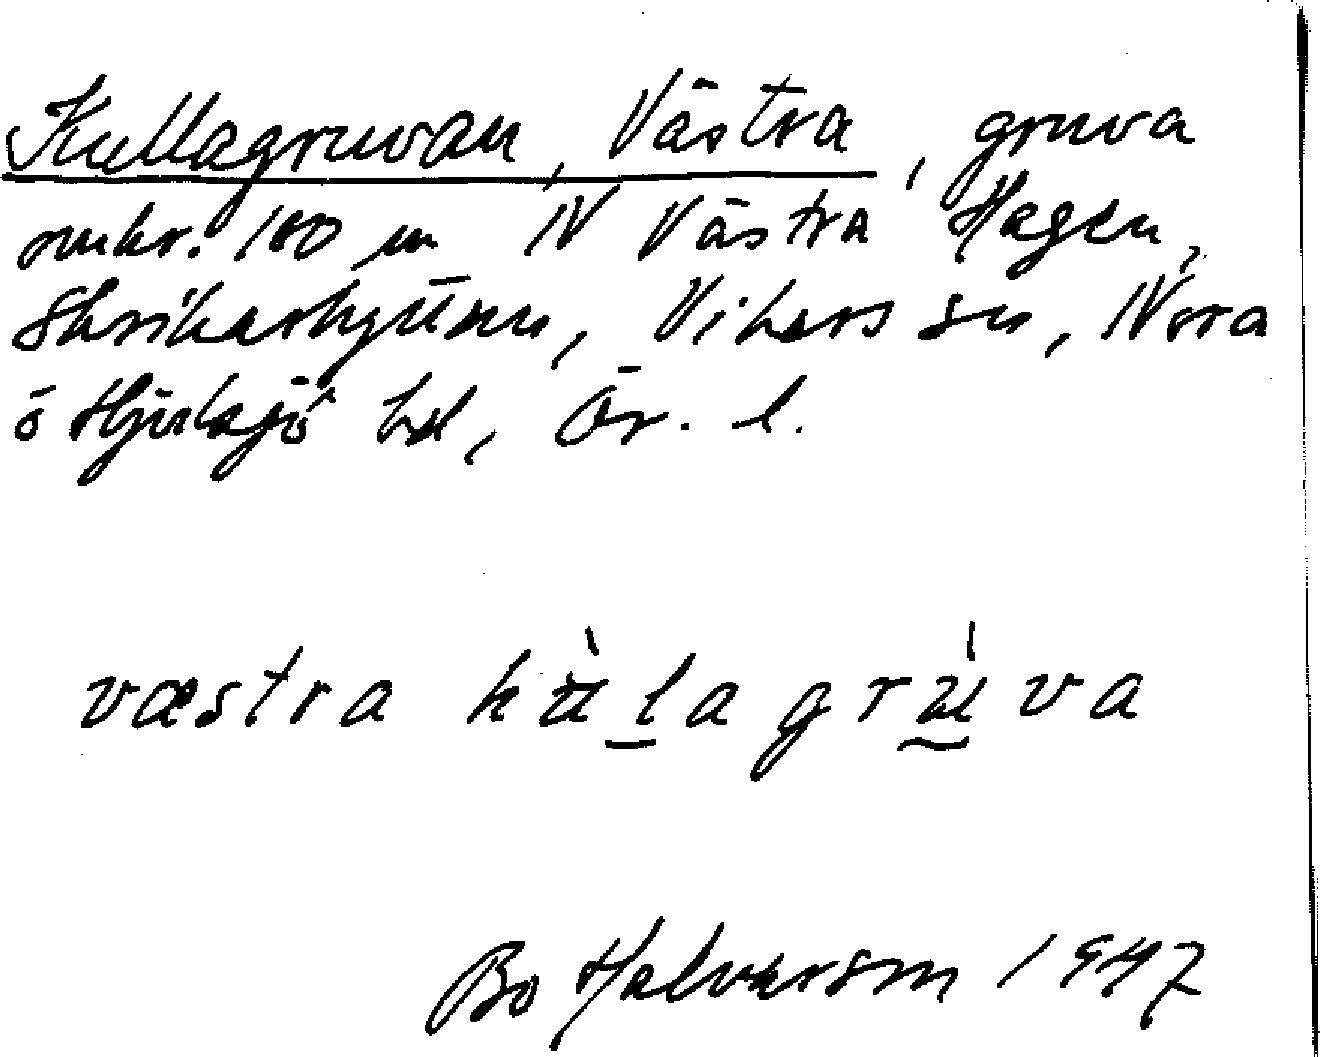 Kullagruvan, Västra, gruva
omkr. 100 m N Västra Hagen,
Skrikarhyttan, Vikers sn, Nora
o Hjulsjö hd, Ör. l.
væstra kùlagrùva
Bo Halvarson 1947